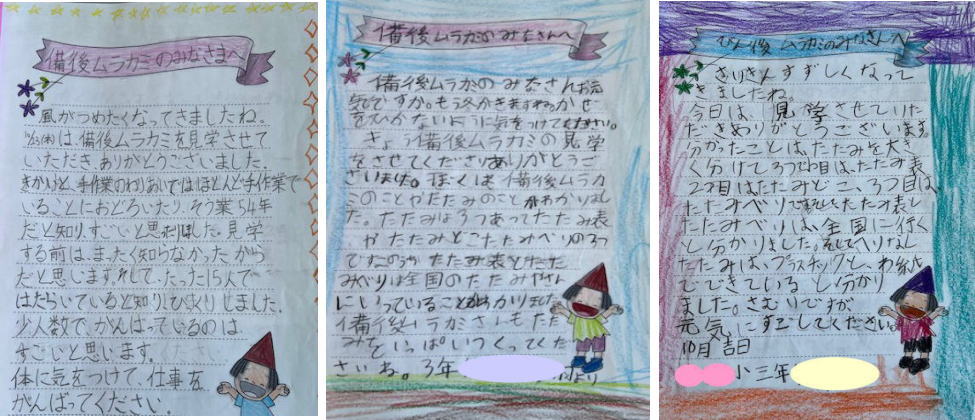 備後ムラカミのみなさまへ
風がつめたくなってきましたね。
10/23(木)は、備後ムラカミを見学させて
いただき、ありがとうございました。
きかいと、手作業のわりあいではほとんど手作業で
いることにおどろいたり、そう業54年
だと知り、すごいと思いました。見学
する前は、まったく知らなかったから
だと思います。それで、たった15人で
はたらいていると知り、びっくりしました。
少人数で、がんばっているのは
すごいと思います。
体に気をつけて、仕事を
がんばってください。
備後ムラカミのみなさんへ
備後ムラカミのみなさんお元
気ですか。もう冬がきますね。かぜ
をひかないように気をつけてください。
きょう備後ムラカミの見学
をさせてくださりありがとうご
ざいました。ぼくは備後ムラカ
ミのことやたたみのことがわかりまし
た。たたみは3つあってたたみ表
やたたみどこたたみべりの3つ
です。たたみ表とたた
みべりは全国のたたみやさん
にいっていることがわかりました
備後ムラカミさんもたた
みでいっぱいつくってくだ
さいね。3年 より
びんご後ムラカミのみなさんへ
さいきんすずしくなって
きましたね。
今日は、見学させていた
だきありがとうございます。
分かったことは、たたみを大き
く分けて3つで1つ目は、たたみ表
2つ目はたたみどこ、3つ目は
たたみべりです。そしてたたみ表と
たたみべりは、全国に行く
と分かりました。そしてへりなし
たたみは、プラスチックと、わ紙
でできていると分かり
ました。さむいですが、
元気にすごしてください。
10月吉日
小三年